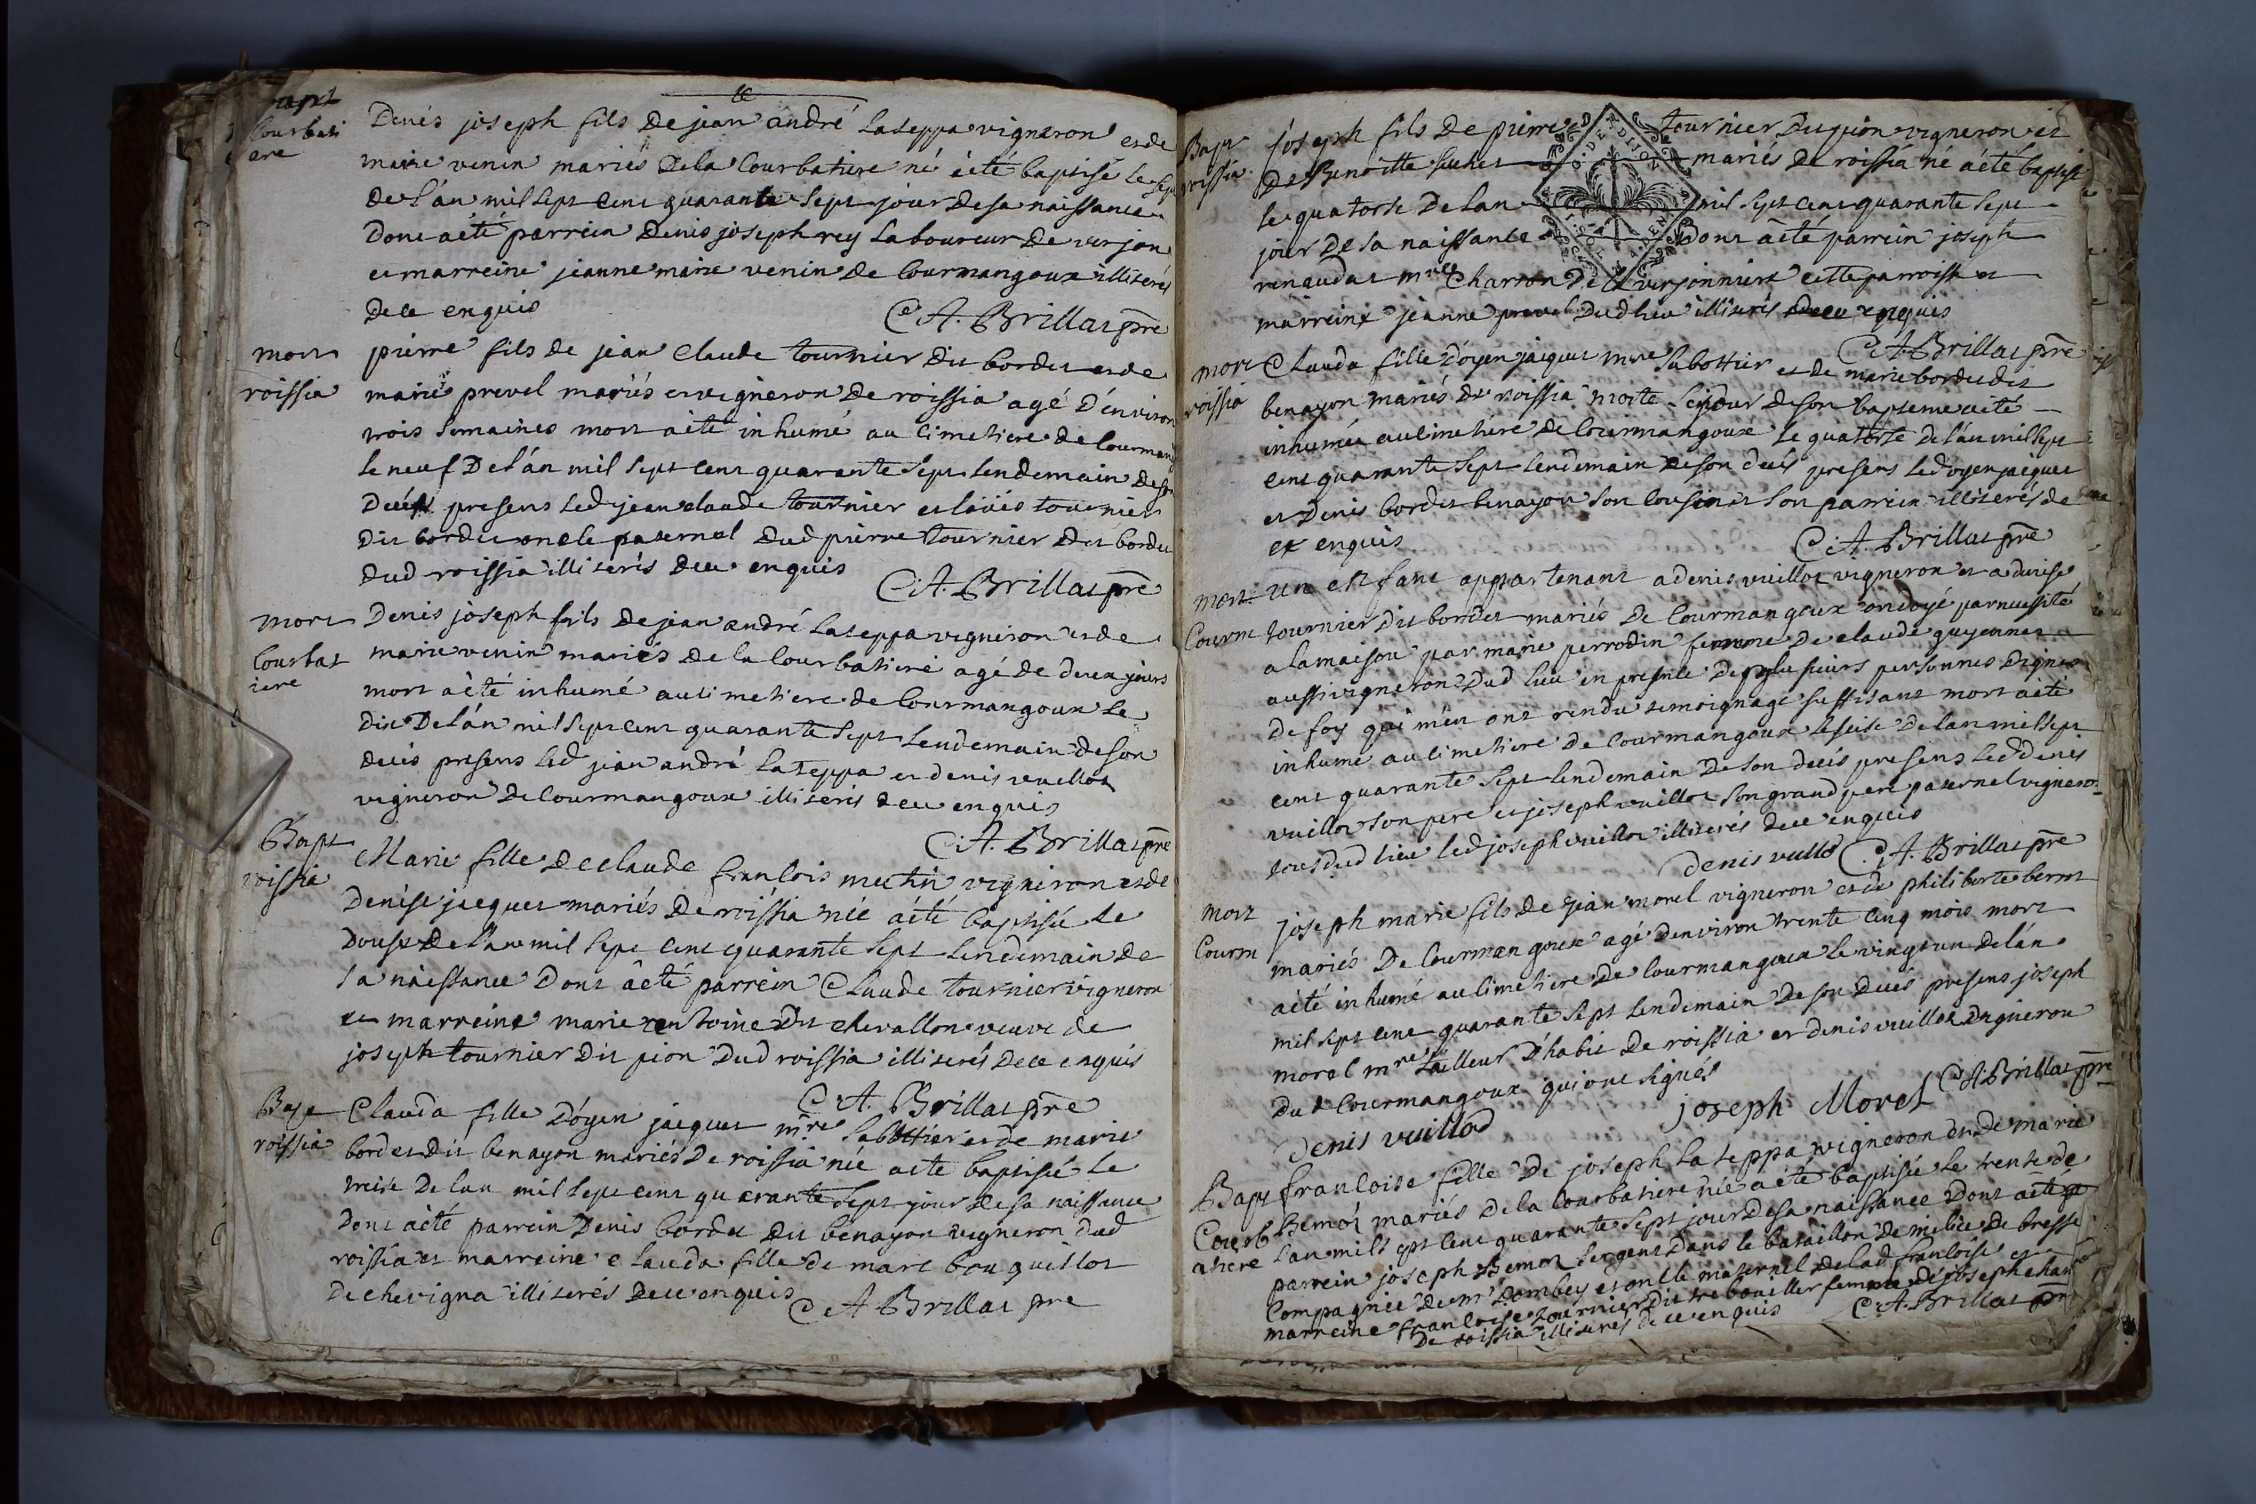 Bapt
Courbati
ere
Denis joseph fils de jean andré lateppa vigneron et de
marie venin mariés dela Courbatiere né àété baptisé le sept
de l'án mil sept cent quarante sept jour de sa naissance
dont àété parrein denis joseph rey laboureur de verjon
et marreine jeanne marie venin de Courmangoux illiterés
de ce enquis
C A. Brillat pre
mort
roissia
pierre fils de jean Claude tournier dit bordet et de
marie prevel mariés et vigneron de roissia agé d'environ
trois semaines mort àété inhumé au cimetiere de Courmang
le neuf de l'án mil sept cent quarante sept lendemain de son
décés presens led jean claude tournier et loüis tournier
dit bordet oncle paternel dud pierre tournier dit bordet
dud roissia illiterés de ce enquis
C. A. Brillat pre
mort
Courbat
iere
Denis joseph fils de jean andré lateppa vigneron et de
marie venin mariés de la Courbatiere agé de deux jours
mort àété inhumé au cimetiere de Courmangoux le
dix de l'án mil sept cent quarante sept lendemain de son
décés presens led jean andré lateppa et denis vuillot
vigneron de Courmangoux illiterés de ce enquis
C. A. Brillat pre
Bapt
roissia
Marie fille de claude francois mechin vigneron et de
Denise jacquet mariés de roissia née àété baptisée le
douse de l'an mil sept cent quarante sept lendemain de
sa naissance dont àété parrein Claude tournier vigneron
et marreine marie antoine dit chevallon veuve de
joseph tournier dit pion dud roissia illiterés de ce enquis
C. A. Brillat pre
Bapt
roissia
Clauda fille d'oyen jacquet mre sabottier et de marie
bordet dit benayon mariés de roissia née àété baptisée le
treise de l'an mil sept cent quarante sept jour de sa naissance
dont àété parrein denis bordet dit benayon vigneron dud
roissia et marreine clauda fille de marc bouquillot
de chevigna illiterés de ce enquis
C A Brillat pre
Bapt
roissia
joseph fils de pierre tournier dit pion vigneron et
de Benoitte mariés de roissia né àété baptisé
le quatorse de l'an mil sept cent quarante sept
jour de sa naissance dont àété parrein joseph
renaudat mre Charron de la verjonniere cette parroisse et
marreine jeanne prevel dud lieu illiterés de ce enquis
C. A. Brillat pre
mort
roissia
Clauda fille d'oyen jacquet mre sabottier et de marie bordet dit
benayon mariés de roissia morte le jour de son bapteme àété
inhumée au cimetiere de Courmangoux le quatorze de l'án mil sept
cent quarante sept lendemain de son décés presens led oyen jacquet
et denis bordet benayon son cousin et son parrein illiterés de
ce enquis
C. A. Brillat pre
mort
Courm
un enfant appartenant a denis vuillot vigneron et a denise
tournier dit bordet mariés de Courmangoux ondoyé par necessité
a la maison par marie perrodin femme de claude guyennet
aussi vigneron dud lieu en presence de plusieurs personnes dignes
de foy qui m'en ont rendu temoignage suffisant mort àété
inhumé au cimetiere de Courmangoux le seise de l'an mil sept
cent quarante sept lendemain de son décés presens led denis
vuillot son pere et joseph vuillot son grand pere paternel vigneron
tous dud lieu led joseph vuillot illiterés de ce enquis
denis vuillod C. A. Brillat pre
mort
Courm
joseph marie fils de jean morel vigneron et de philiberte
mariés de Courmangoux agé denviron trente cinq mois mort
àété inhumé au cimetiere de Courmangoux le vingt un de l'án
mil sept cent quarante sept lendemain de son décés presens joseph
morel mre tailleur d'habit de roissia et denis vuillot vigneron
dud Courmangoux qui ont signés
joseph Morel C A Brillat pre
denis vuillod
Bapt
Courb
atiere
francoise fille de joseph lateppa vigneron et de marie
Bemon mariés de la Courbatiere née àété baptisée le trente de
l'an mil sept cent quarante sept jour de sa naissance dont àété
parrein joseph Bemon sergent dans le bataillon de milice de bresse
Compagnie de mr dombey et oncle maternel de lad francoise et
marreine francoise tournier dit femme de joseph
de roissia illiterés de ce enquis
C. A. Brillat pre